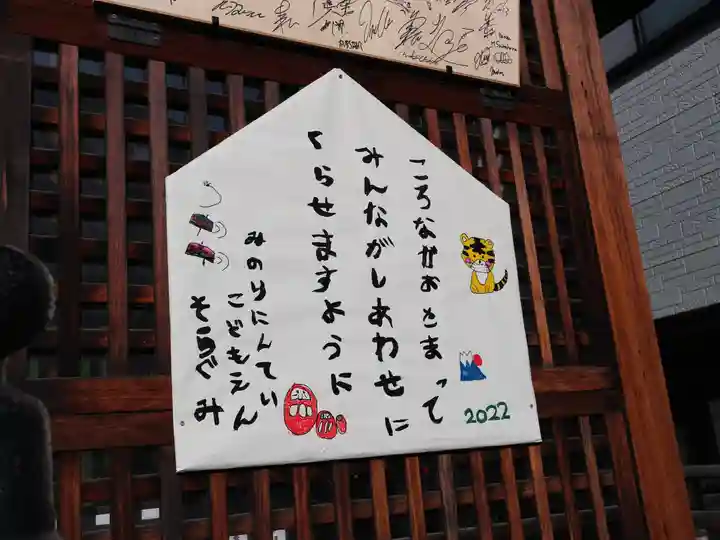 ころながおさまって
みんながしあわせに
くらせますように
みのりにんてい
こどもえん
そらぐみ
2022